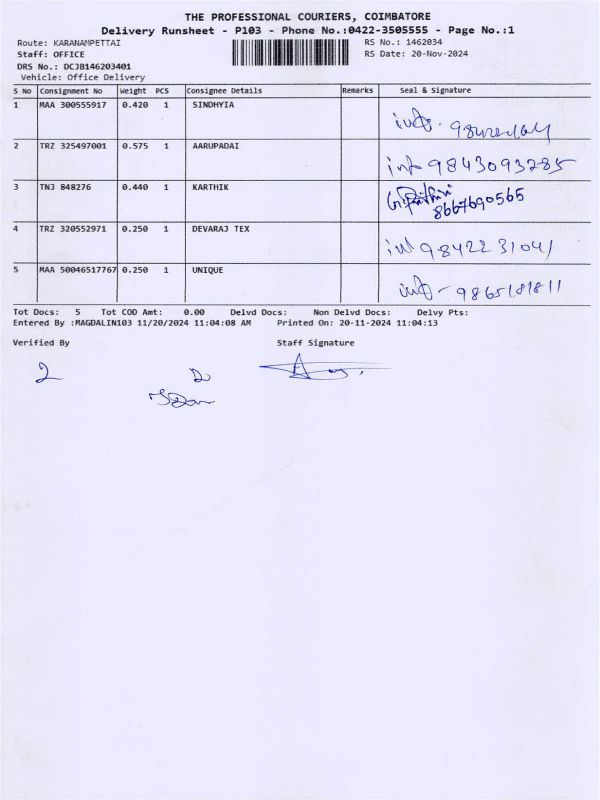 THE PROFESSIONAL COURIERS, COIMBATORE
Delivery Runsheet - P103 - Phone No.:0422-3505555 - Page No.:1
Route: KARANAMPETTAI RS No.: 1462034
Staff: OFFICE RS Date: 20-Nov-2024
DRS No.: DCJB146203401
Vehicle: Office Delivery
S No Consignment No Weight PCS Consignee Details Remarks Seal & Signature
1 MAA 300555917 0.420 1 SINDHYIA
2 TRZ 325497001 0.575 1 AARUPADAI 9843093285
3 TNJ 848276 0.440 1 KARTHIK 8667690565
4 TRZ 320552971 0.250 1 DEVARAJ TEX 9842231041
5 MAA 50046517767 0.250 1 UNIQUE 9865181811
Tot Docs: 5 Tot COD Amt: 0.00 Delvd Docs: Non Delvd Docs: Delvy Pts:
Entered By :MAGDALIN103 11/20/2024 11:04:08 AM Printed On: 20-11-2024 11:04:13
Verified By Staff Signature